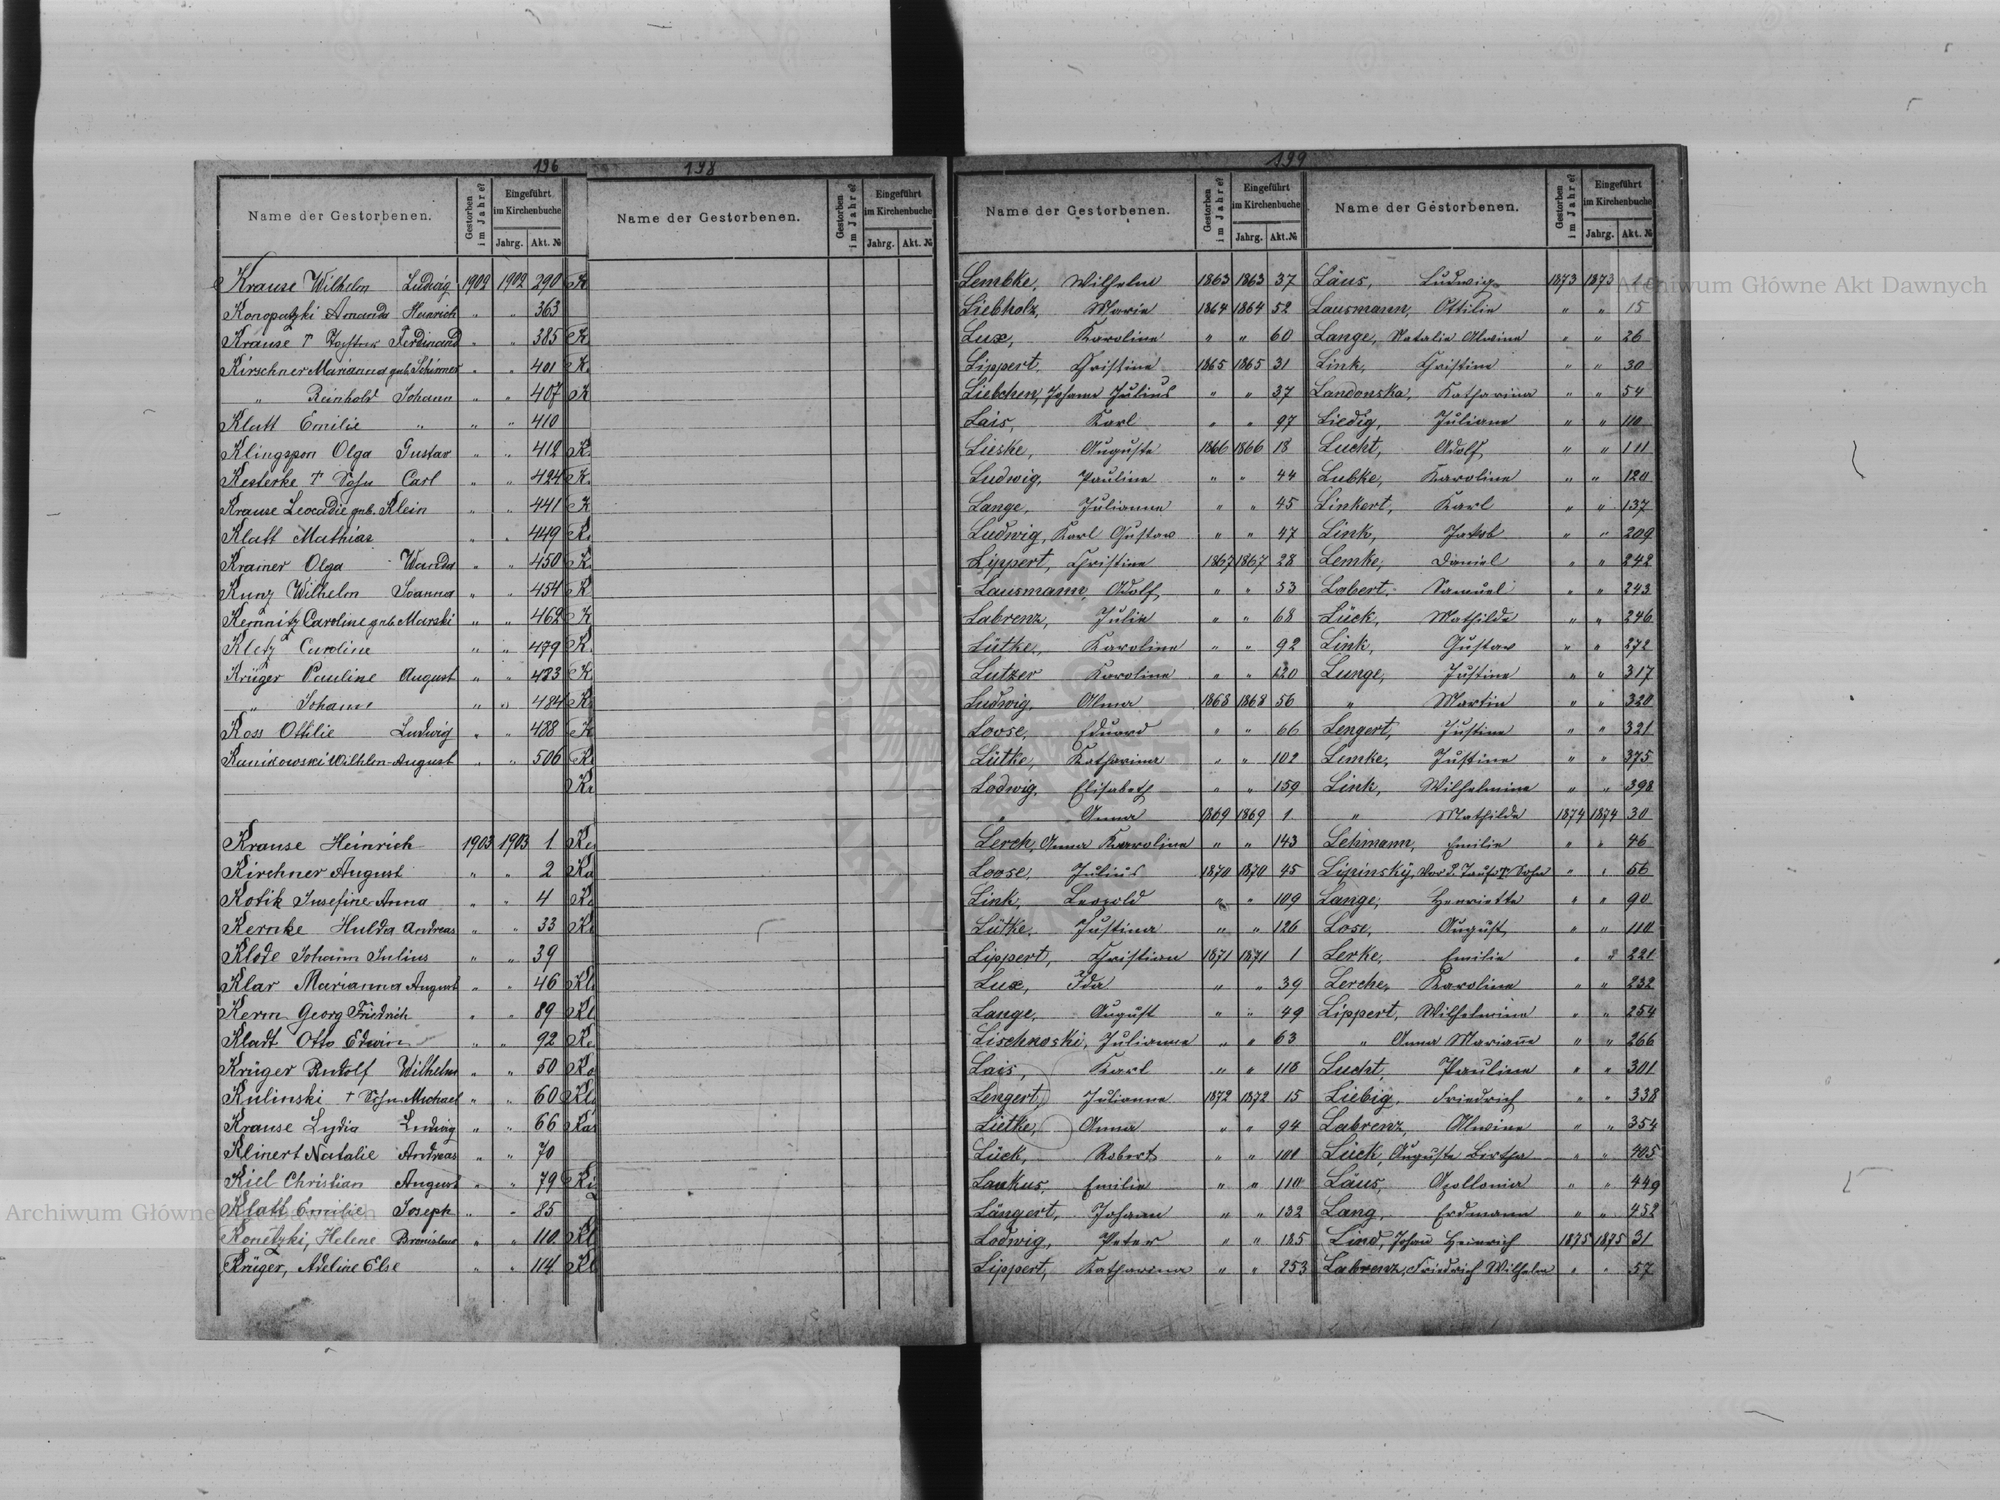 196
Name der Gestorbenen.
Gestorben im Jahre?
Eingeführt im Kirchenbuche
Jahrg. Akt. №
Krause Wilhelm Ludwig 1902 1902 290
Konopatzki Amanda Heinrich " " 363
Krause † Tochter Ferdinand " " 385
Kirschner Marianna geb. Schirmer " " 401
" Reinhold Johann " " 407
Klatt Emilie " " " 410
Klingspon Olga Gustav " " 412
Kesterke † Sohn Carl " " 424
Krause Leocadie geb. Klein " " 441
Klatt Mathias " " 449
Kramer Olga Wanda " " 450
Kunz Wilhelm Joanna " " 454
Kemnitz Caroline geb. Marski " " 462
Kletz Caroline " " 479
Krüger Pauline August " " 483
" Johann " " 484
Koss Ottilie Ludwig " " 488
Kunikowski Wilhlm August " " 506
Krause Heinrich 1903 1903 1
Kirchner August " " 2
Kotik Josefine Anna " " 4
Kernke Hulda Andreas " " 33
Klode Johann Julius " " 39
Klar Marianna August " " 46
Kerm Georg Friedrich " " 89
Kladt Otto Edwin " " 92
Krüger Rudolf Wilhelm " " 50
Kulinski † Sohn Michael " " 60
Krause Lydia Ludwig " " 66
Klinert Natalie Andreas " " 70
Kiel Christian August " " 79
Klatt Emilie Joseph " " 85
Konetzki, Helene Bronislaw " " 110
Krüger, Adeline Else " " 114
198
Name der Gestorbenen.
Gestorben im Jahre?
Eingeführt im Kirchenbuche
Jahrg. Akt. №
199
Name der Gestorbenen.
Gestorben im Jahre?
Eingeführt im Kirchenbuche
Jahrg. Akt. №
Lembke, Wilhelm 1863 1863 37
Liebholz, Marie 1864 1864 52
Lux, Karoline " " 60
Lippert, Christine 1865 1865 31
Liebchen, Johann Julius " " 37
Lais, Karl " " 97
Lieske, Auguste 1866 1866 18
Ludwig, Pauline " " 44
Lange, Julianna " " 45
Ludwig, Karl Gustav " " 47
Lippert, Christine 1867 1867 28
Lausmann, Adolf " " 53
Labrenz, Julie " " 68
Lütke, Karoline " " 92
Lutzer Karoline " " 120
Ludwig, Alma 1868 1868 56
Loose, Eduard " " 66
Lütke, Katharina " " 102
Ladwig, Elisabeth " " 159
" Anna 1869 1869 1
Lerch, Anna Karoline " " 143
Loose, Julius 1870 1870 45
Link, Leopold " " 109
Lütke, Justina " " 126
Lippert, Christian 1871 1871 1
Lux, Ida " " 39
Lange, August " " 49
Lischnoski, Julianna " " 63
Lais, Karl " " 118
Lengert, Julianna 1872 1872 15
Lietke, Anna " " 94
Lück, Robert " " 101
Laukus, Emilie " " 110
Längert, Johann " " 132
Lodwig, Peter " " 185
Lippert, Katharina " " 253
Name der Gestorbenen.
Gestorben im Jahre?
Eingeführt im Kirchenbuche
Jahrg. Akt. №
Läus, Ludwig 1873 1873 1
Lausmann, Ottilie " " 15
Lange, Natalie Alwine " " 26
Link, Christine " " 30
Landonska, Katharina " " 54
Liedig, Juliane " " 110
Lucht, Adolf " " 111
Lubke, Karoline " " 120
Linkert, Karl " " 137
Link, Jakob " " 209
Lemke, Daniel " " 242
Labert, Samuel " " 243
Lück, Mathilde " " 246
Link, Gustav " " 272
Lange, Justine " " 317
" Martin " " 320
Lengert, Justine " " 321
Lemke, Justine " " 375
Link, Wilhelmine " " 398
" Mathilde 1874 1874 30
Lehmann, Emilie " " 46
Lipinsky, vor d. Taufe † Sohn " " 56
Lange, Henriette " " 90
Lose, August " " 110
Lerke, Emilie " " 221
Lerche, Karoline " " 232
Lippert, Wilhelmine " " 254
" Anna Marianne " " 266
Lucht, Pauline " " 301
Liebig, Friedrich " " 338
Labrenz, Alwine " " 354
Lück, Auguste Bertha " " 405
Läus, Apollonia " " 449
Lang, Erdmann " " 452
Lind, Johan Heinrich 1875 1875 31
Labrenz, Friedrich Wilhelm " " 57
Archiwum Główne Akt Dawnych
Archiwum Główne Akt Dawnych